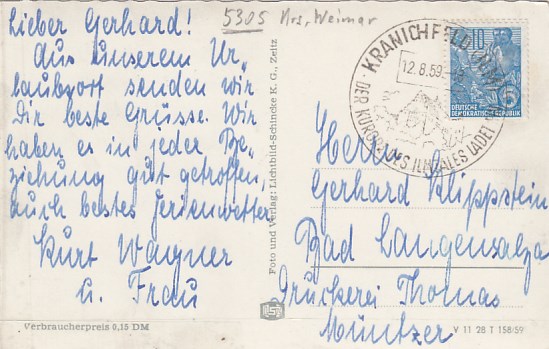 Lieber Gerhard!
Aus unserem Ur„
laubsort senden wir
Dir beste Grüsse. Wir
haben es in jeder Be„
ziehung gut getroffen,
auch bestes Ferienwetter
Kurt Wagner
u. Frau
Verbraucherpreis 0,15 DM
5305 Krs. Weimar
Foto und Verlag: Lichtbild-Schincke K. G., Zeitz
KRANICHFELD
12.8.59
DER KURORT DES ILMTALES LADET
10
5
DEUTSCHE
DEMOKRATISCHE REPUBLIK
Herrn
Gerhard Klippstein
Bad Langensalza
Druckerei Thomas
Müntzer
V 11 28 T 158/59